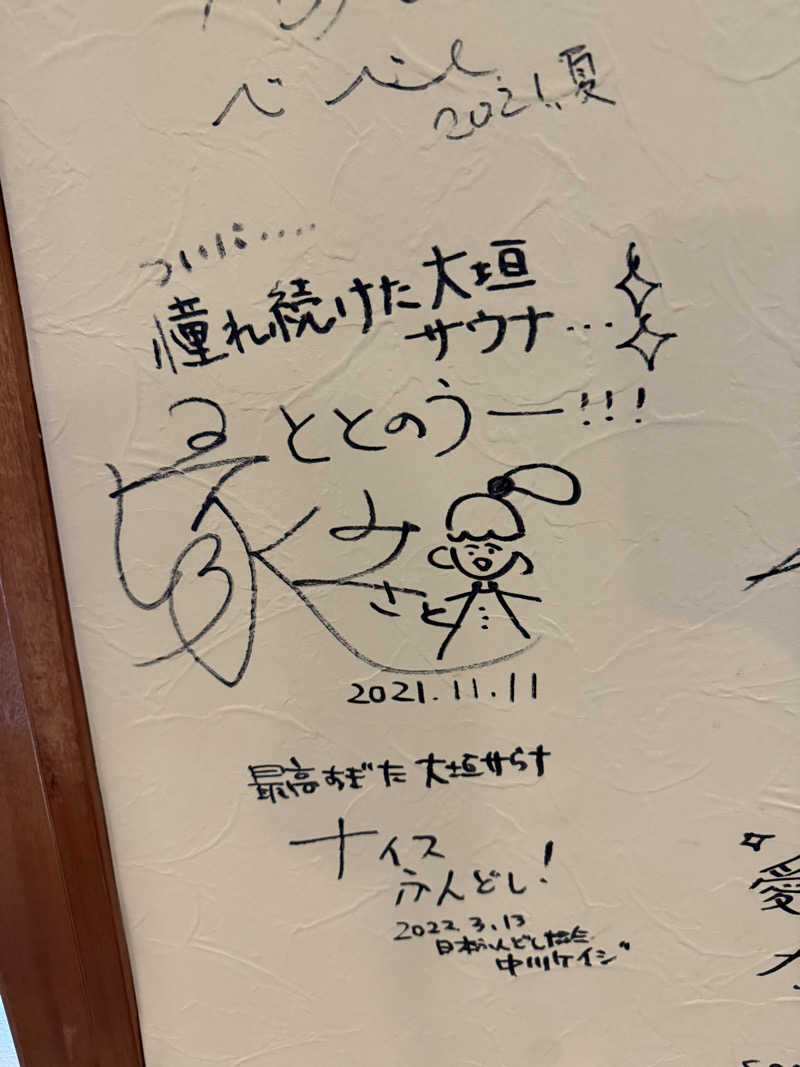 2021.夏
ついに....
憧れ続けた大垣
サウナ...
ととのうー!!!
さと
2021.11.11
最高すぎた大垣サウナ
ナイス
ふんどし!
2022.3.13
日本ふんどし協会
中川ケイジ
愛